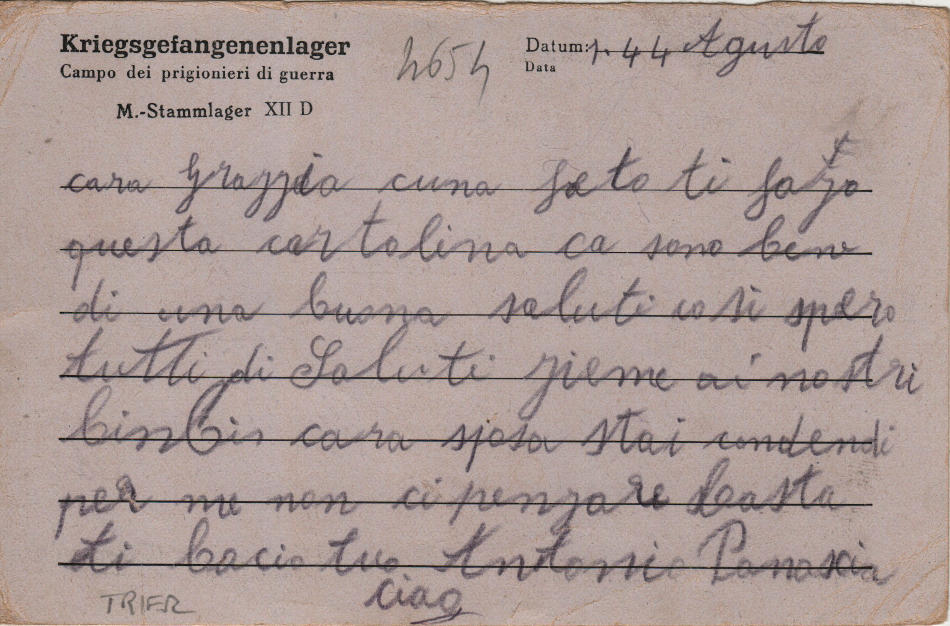 Kriegsgefangenenlager
Campo dei prigionieri di guerra
M.-Stammlager XII D
2654
Datum: 1. 44 Agusto
Data
cara Grazzia cuna foto ti fazo
questa cartolina ca sono bene
di una buona saluti cosi spero
tutti di Saluti zieme ai nostri
binbin cara sposa stai condendi
per me non ci penzare basta
ti bacio tuo Antonio Panascia
ciao
TRIER